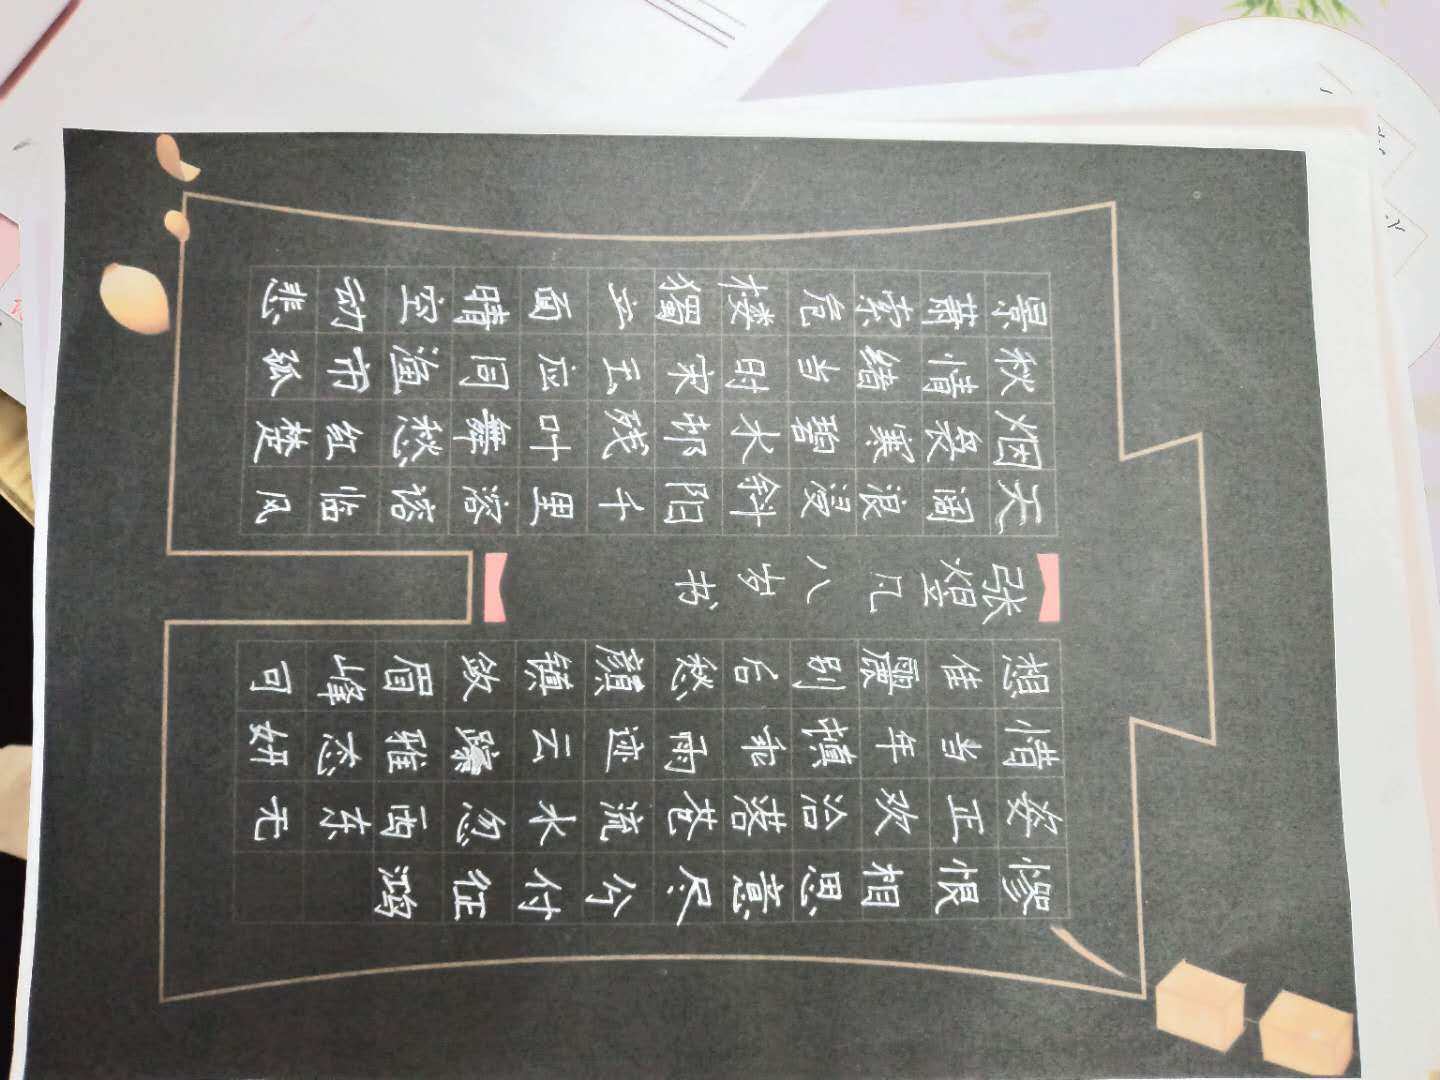 景萧索危楼獨立面晴空动悲
秋情绪当时宋玉应同渔市孤
烟袅寒碧水邨残叶舞愁红楚
天阔浪浸斜阳千里溶溶临风
张煜凡八岁书
想佳麗别后愁顏镇敛眉峰可
惜当年顿乖雨迹云踪雅态妍
姿正欢洽落花流水忽西东无
憀恨相思意尽分付征鸿